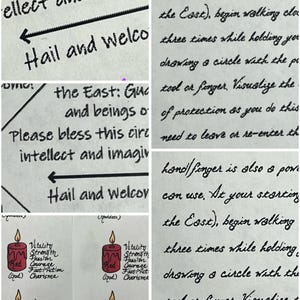 ellect an
Hail and Welco
the East: Gua
and beings o
Please bless this circ
intellect and imagin
Hail and Welcom
Vitality
Strength
Passion
Courage
Red
(God)
Charisma
Vitality
Strength
Passion
Courage
Red
(God)
Charisma
the East), begin walking clo
three times while holding you
drawing a circle with the po
tool or finger. Visualize the
of protection as you do this
need to leave or re-enter th
hand/finger is also a powe
can use. At your starting
the East), begin walking
three times while holding
drawing a circle with the